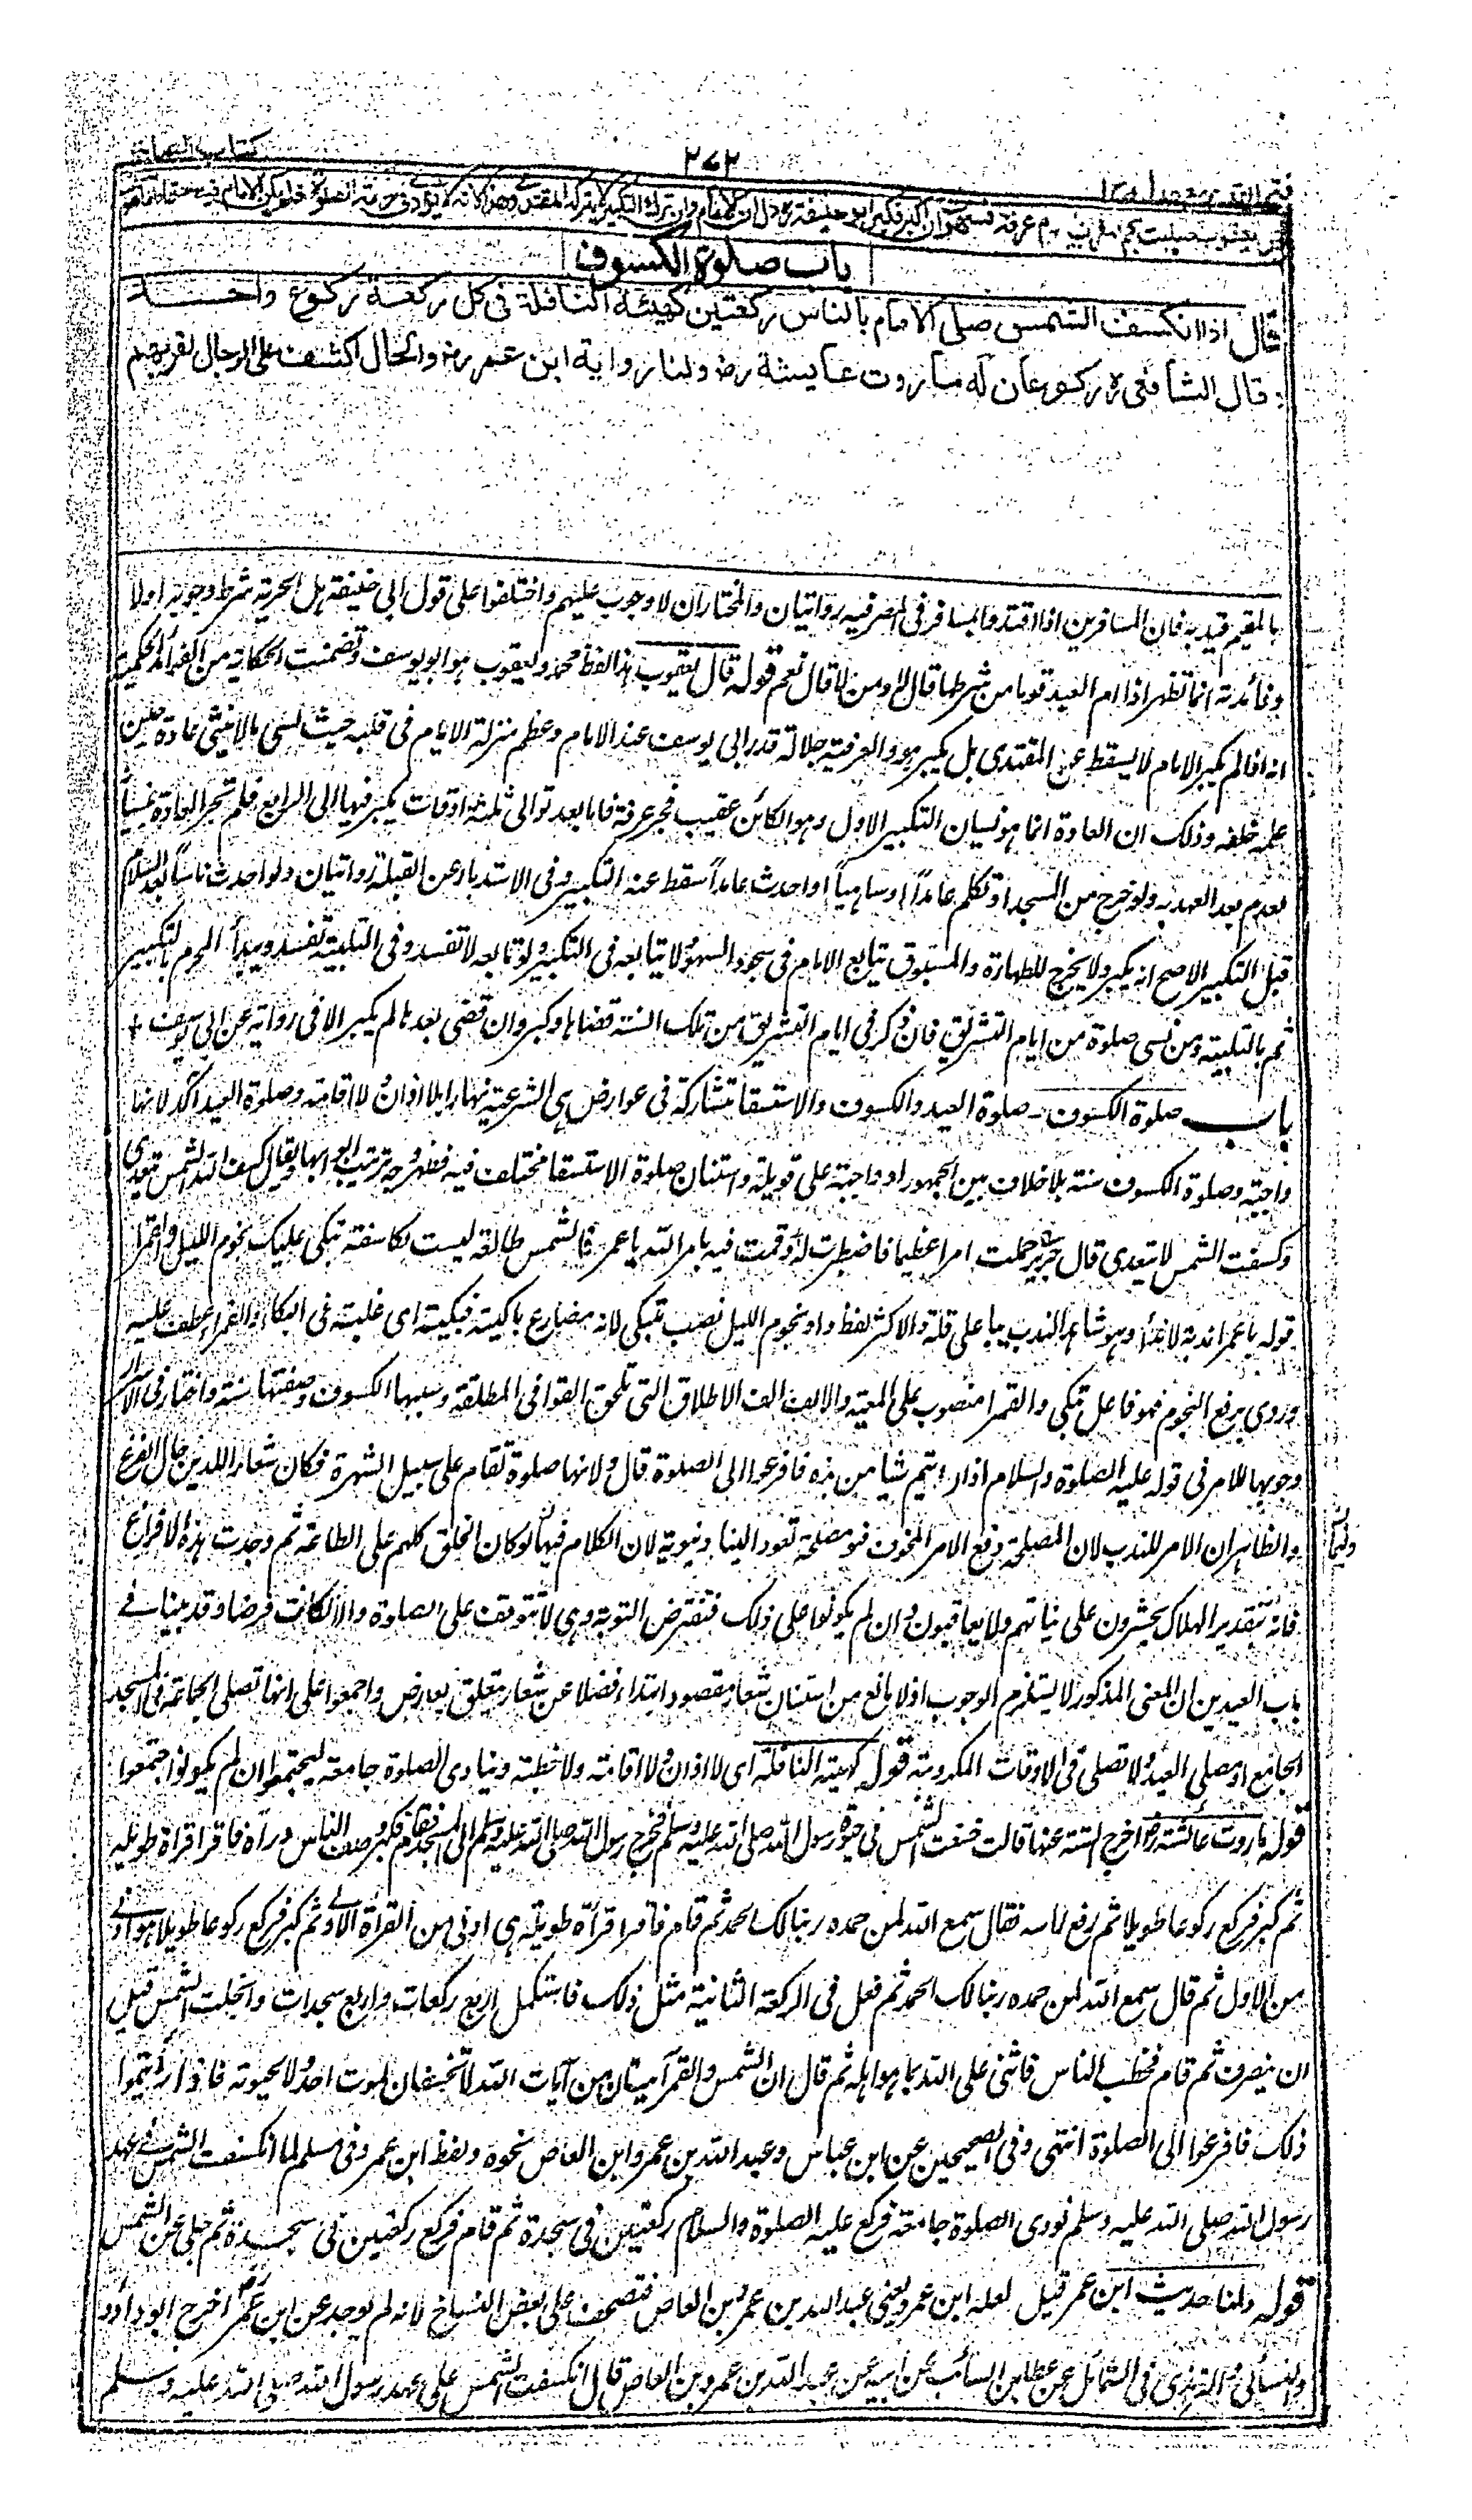 ٢٧٢
باب صلوة الكسوف
قال اذا انكسفت الشمس صلى الامام بالناس ركعتين كهيئة النافلة فى كل ركعة ركوع واحد
قال الشافعى ره ركوعان له ما روت عايشة رض ولنا رواية ابن عمر رض والحال اكشف على الرجال لقربهم
بالمقيم قيد به فان المسافرين اذا اقتدوا بمسافر فى المصر فيه روايتان والمختار ان لا وجوب عليهم واختلفوا على قول ابى حنيفة هل الحرية شرط وجوبه اولا
وفائدته انما تظهر اذا ام العبد قوما من شرطها قال لا ومن لا قال نعم قوله قال يعقوب هذا لفظ محمد ويعقوب هو ابو يوسف وتضمنت الحكاية من الفوائد الحكمية
انه اذا لم يكبر الامام لا يسقط عن المقتدى بل يكبر هو والعرفية جلالة قدر ابى يوسف عند الامام وعظم منزلة الامام فى قلبه حيث نسى ما لا ينسى عادة حين
علمه خلفه وذلك ان العادة انما هو نسيان التكبير الاول وهو الكائن عقيب فجر عرفة فاما بعد توالى ثلثة اوقات يكبر فيها الى الرابع فلم تجر العادة بنسيانه
لعدم بعد العهد به ولو خرج من المسجد او تكلم عامدا او ساهيا او احدث عامدا سقط عنه التكبير وفى الاستدبار عن القبلة روايتان ولو احدث ناسيا بعد السلام
قبل التكبير الاصح انه يكبر ولا يخرج للطهارة والمسبوق يتابع الامام فى سجود السهو ولا يتابعه فى التكبير ولو تابعه لا تفسد وفى التلبية تفسد ويبدأ المحرم بالتكبير
ثم بالتلبية ومن نسى صلوة من ايام التشريق فان ذكر فى ايام التشريق من تلك السنة قضاها وكبر وان قضى بعدها لم يكبر الا فى رواية عن ابى يوسف +
باب صلوة الكسوف - صلوة العيد والكسوف والاستسقا متشاركة فى عوارض هى الشرعية نهارا بلا اذان ولا اقامة وصلوة العيد آكد لانها
واجبة وصلوة الكسوف سنة بلا خلاف بين الجمهور او واجبة على قويلة واستنان صلوة الاستسقا مختلف فيه فظهر وجه ترتيب ابوابها ويقال كسف الله الشمس يتعدى
وكسفت الشمس لا يتعدى قال جرير حملت امرا عظيما فاضطبرت له وقمت فيه بامر الله يا عمر فالشمس طالعة ليست بكاسفة تبكى عليك نجوم الليل والقمرا
قوله يا عمر اندبة لا نداء وهو شاهد الندب بيا على قلة والاكثر لفظ وا ونجوم الليل نصب تبكى لانه مضارع باكيته فبكيته اى غلبته فى البكاء والقمر عطف عليه
وروى برفع النجوم فهو فاعل تبكى والقمر منصوب على المعية والالف الف الاطلاق التى تلحق القوافى المطلقة وسببها الكسوف وصفتها سنة واختار فى الاسرار
وجوبها للامر فى قوله عليه الصلوة والسلام اذا رايتم شيئا من هذه فافزعوا الى الصلوة قال ولانها صلوة تقام على سبيل الشهرة فكان شعار للدين حال الفزع
والظاهر ان الامر للندب لان المصلحة دفع الامر المخوف فهو مصلحة تعود الينا دنيوية لان الكلام فيما لو كان الخلق كلهم على الطاعة ثم وجدت هذه الافزاع
فانه بتقدير الهلاك يحشرون على نياتهم ولا يعاقبون وان لم يكونوا على ذلك فتفترض التوبة وهى لا تتوقف على الصلوة والا لكانت فرضا وقد بينا فى
باب العيدين ان المعنى المذكور لا يستلزم الوجوب اذ لا مانع من استنان شعار مقصود ابتداء فضلا عن شعار متعلق بعارض واجمعوا على انها تصلى بجماعة فى المسجد
الجامع او مصلى العيد ولا تصلى فى الاوقات المكروهة قوله كهيئة النافلة اى لا اذان ولا اقامة ولا خطبة وينادى الصلوة جامعة ليجتمعوا ان لم يكونوا اجتمعوا
قوله ما روت عائشة رض اخرج الستة عنها قالت خسفت الشمس فى حيوة رسول الله صلى الله عليه وسلم فخرج رسول الله صلى الله عليه وسلم الى المسجد فقام فكبر وصف الناس وراه فاقترا قراة طويلة
ثم كبر فركع ركوعا طويلا ثم رفع راسه فقال سمع الله لمن حمده ربنا لك الحمد ثم قام فاقترا قرأة طويلة هى ادنى من القرأة الاولى ثم كبر فركع ركوعا طويلا هو ادنى
من الاول ثم قال سمع الله لمن حمده ربنا لك الحمد ثم فعل فى الركعة الثانية مثل ذلك فاستكمل اربع ركعات واربع سجدات وانجلت الشمس قبل
ان ينصرف ثم قام فخطب الناس فاثنى على الله بما هو اهله ثم قال ان الشمس والقمر آيتان من آيات الله لا تخسفان لموت احد ولا لحيوته فاذا رأيتموا
ذلك فافزعوا الى الصلوة انتهى وفى الصحيحين عن ابن عباس وعبد الله بن عمرو ابن العاص نحوه ولفظ ابن عمر وفى مسلم لما انكسفت الشمس فى عهد
رسول الله صلى الله عليه وسلم نودى الصلوة جامعة فركع عليه الصلوة والسلام ركعتين فى سجدة ثم قام فركع ركعتين فى سجدة ثم جلى عن الشمس
قوله ولنا حديث ابن عمر قيل لعله ابن عمرو يعنى عبد الله بن عمرو بن العاص فتصحف على بعض النساخ لانه لم يوجد عن ابن عمر رض اخرج ابو داؤد
والنسائى والترمذى فى الشمائل عن عطا بن السائب عن ابيه عن عبد الله بن عمرو بن العاص قال انكسفت الشمس على عهد رسول الله صلى الله عليه وسلم